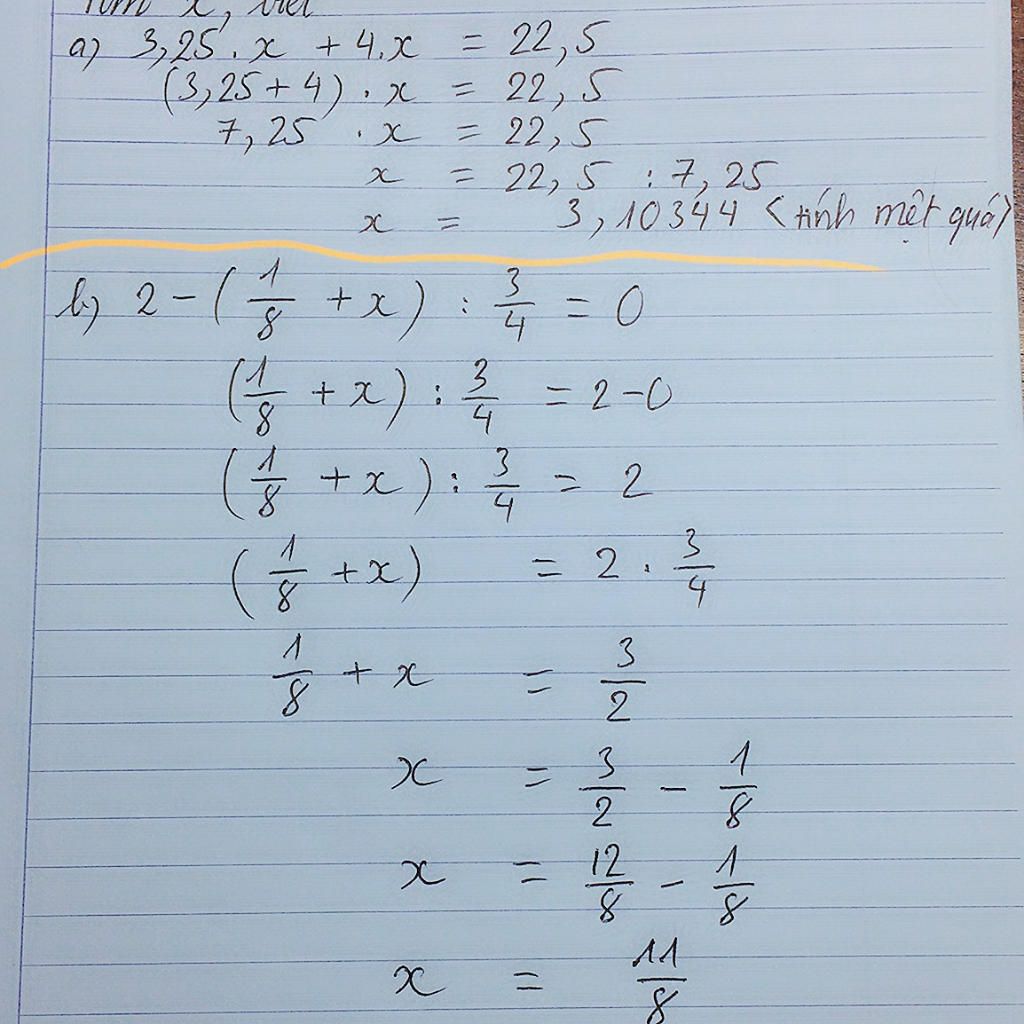 Tìm x, biết
a) 3,25 . x + 4.x = 22,5
(3,25 + 4) . x = 22,5
7,25 . x = 22,5
x = 22,5 : 7,25
x = 3,10344 <tính mệt quá>
b) 2 - (1/8 + x) : 3/4 = 0
(1/8 + x) : 3/4 = 2 - 0
(1/8 + x) : 3/4 = 2
(1/8 + x) = 2 . 3/4
1/8 + x = 3/2
x = 3/2 - 1/8
x = 12/8 - 1/8
x = 11/8